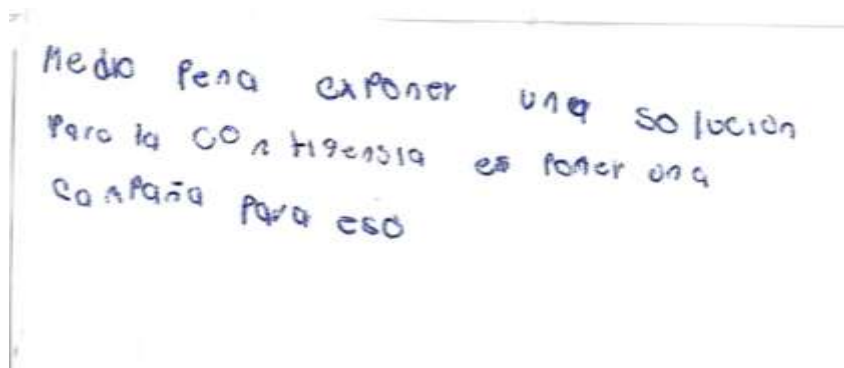 Medio Pena exponer una solución
Para la contigensia es poner una
conpaña para eso